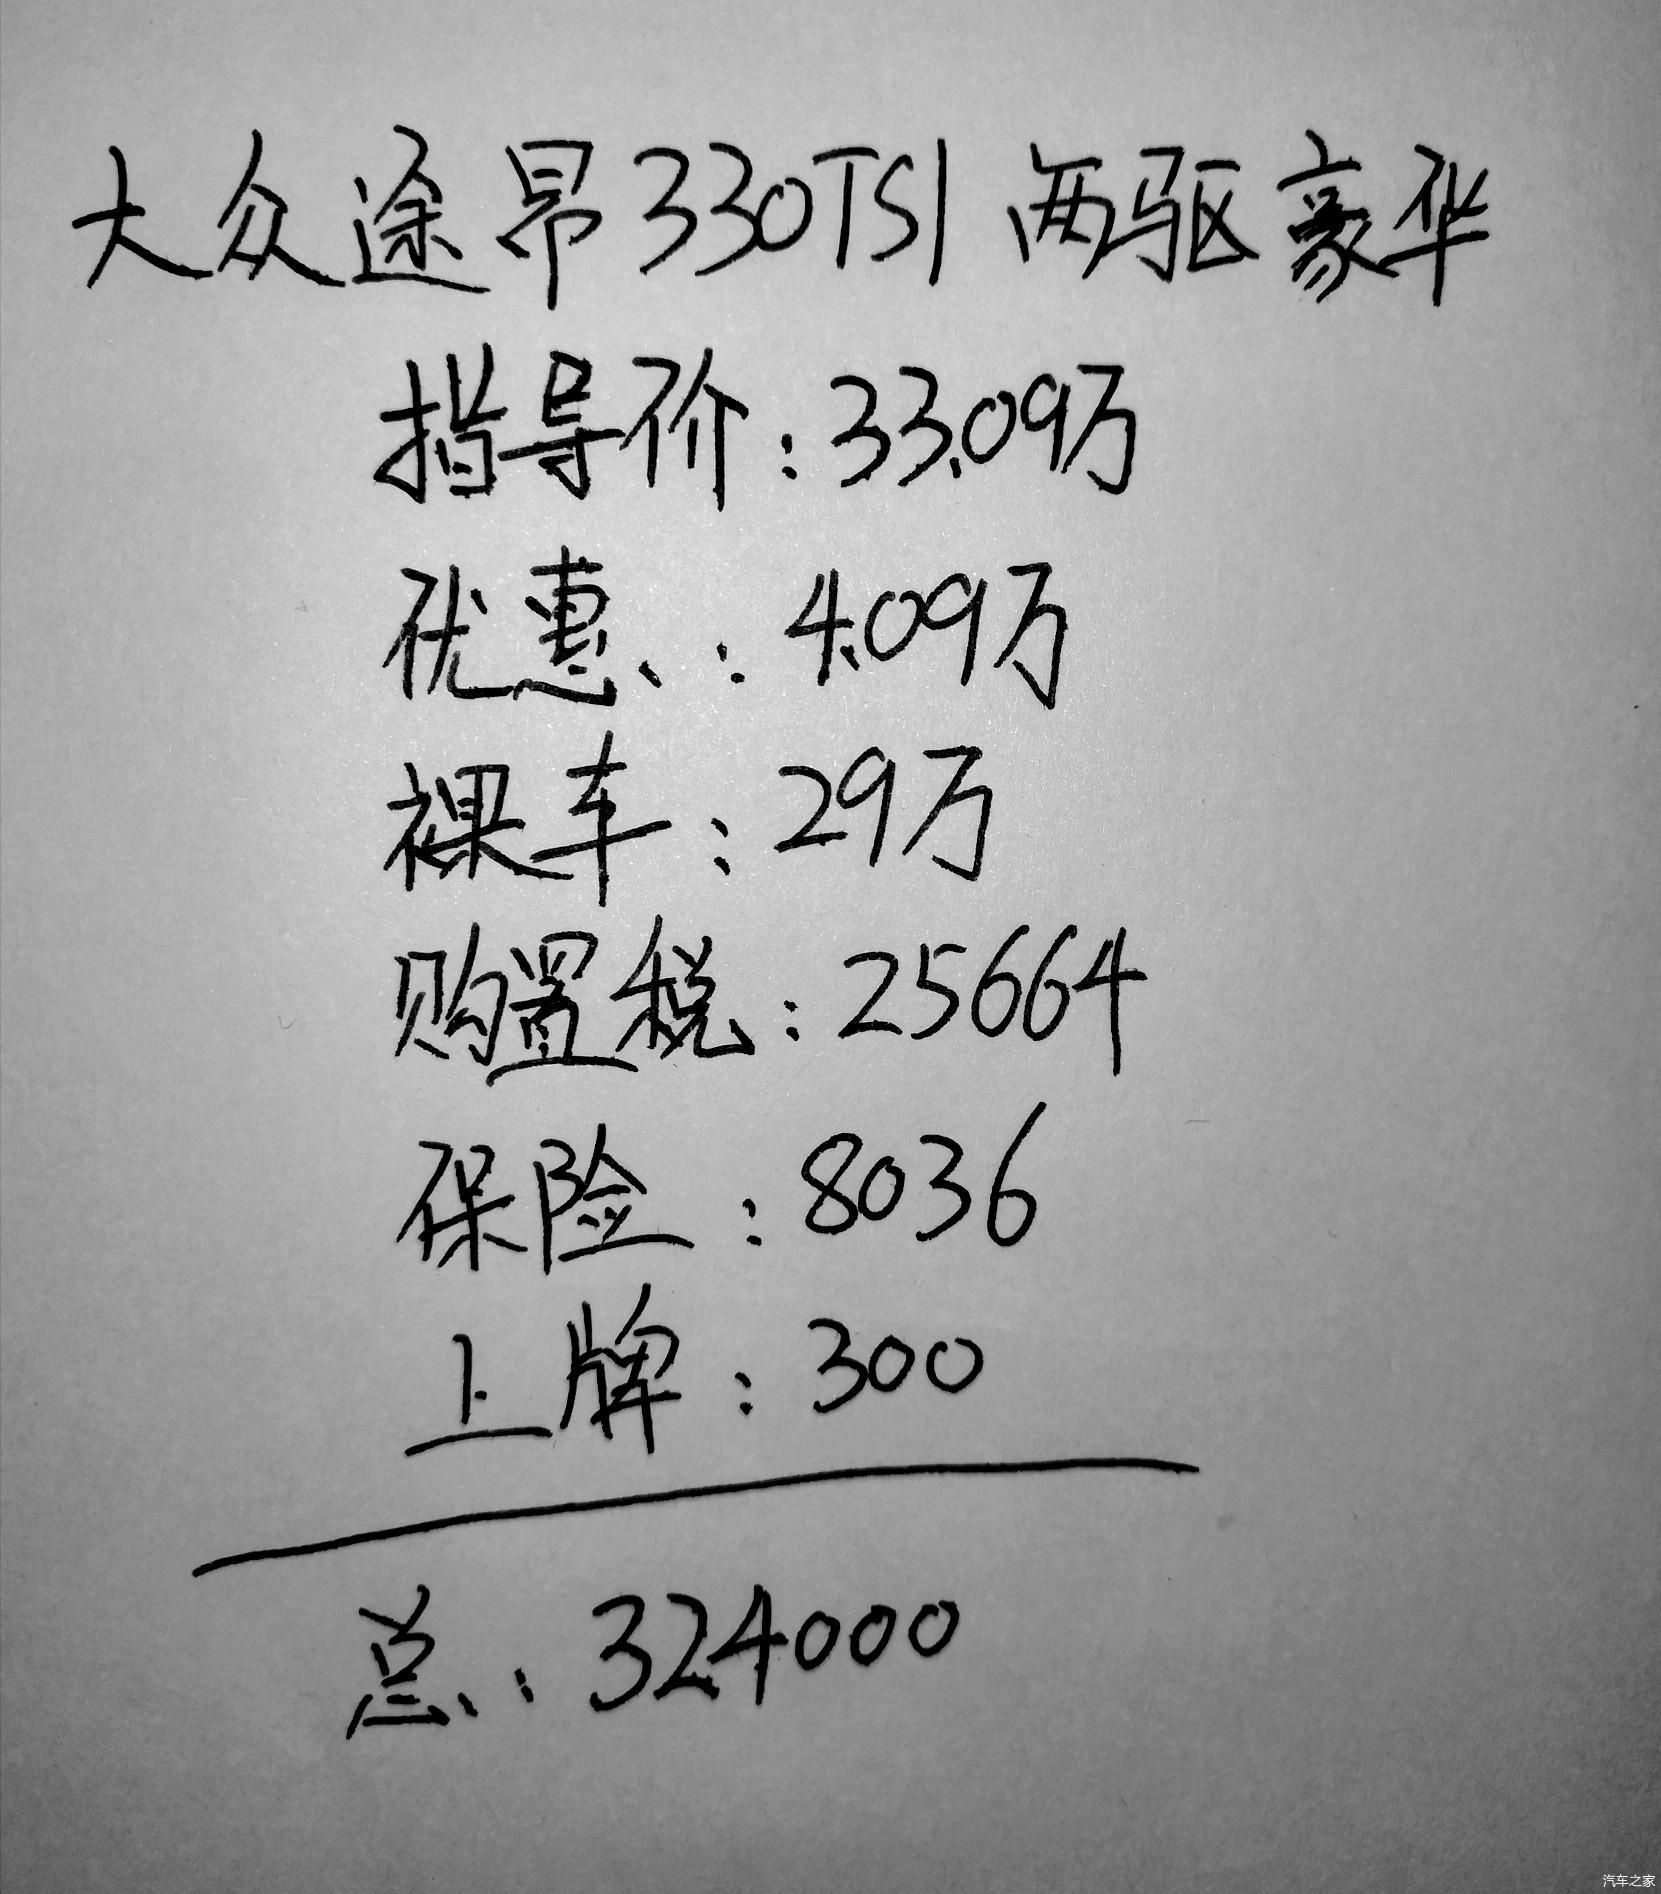 大众途昂330TSI 两驱豪华
指导价：33.09万
优惠：4.09万
裸车：29万
购置税：25664
保险：8036
上牌：300
总：324000
汽车之家